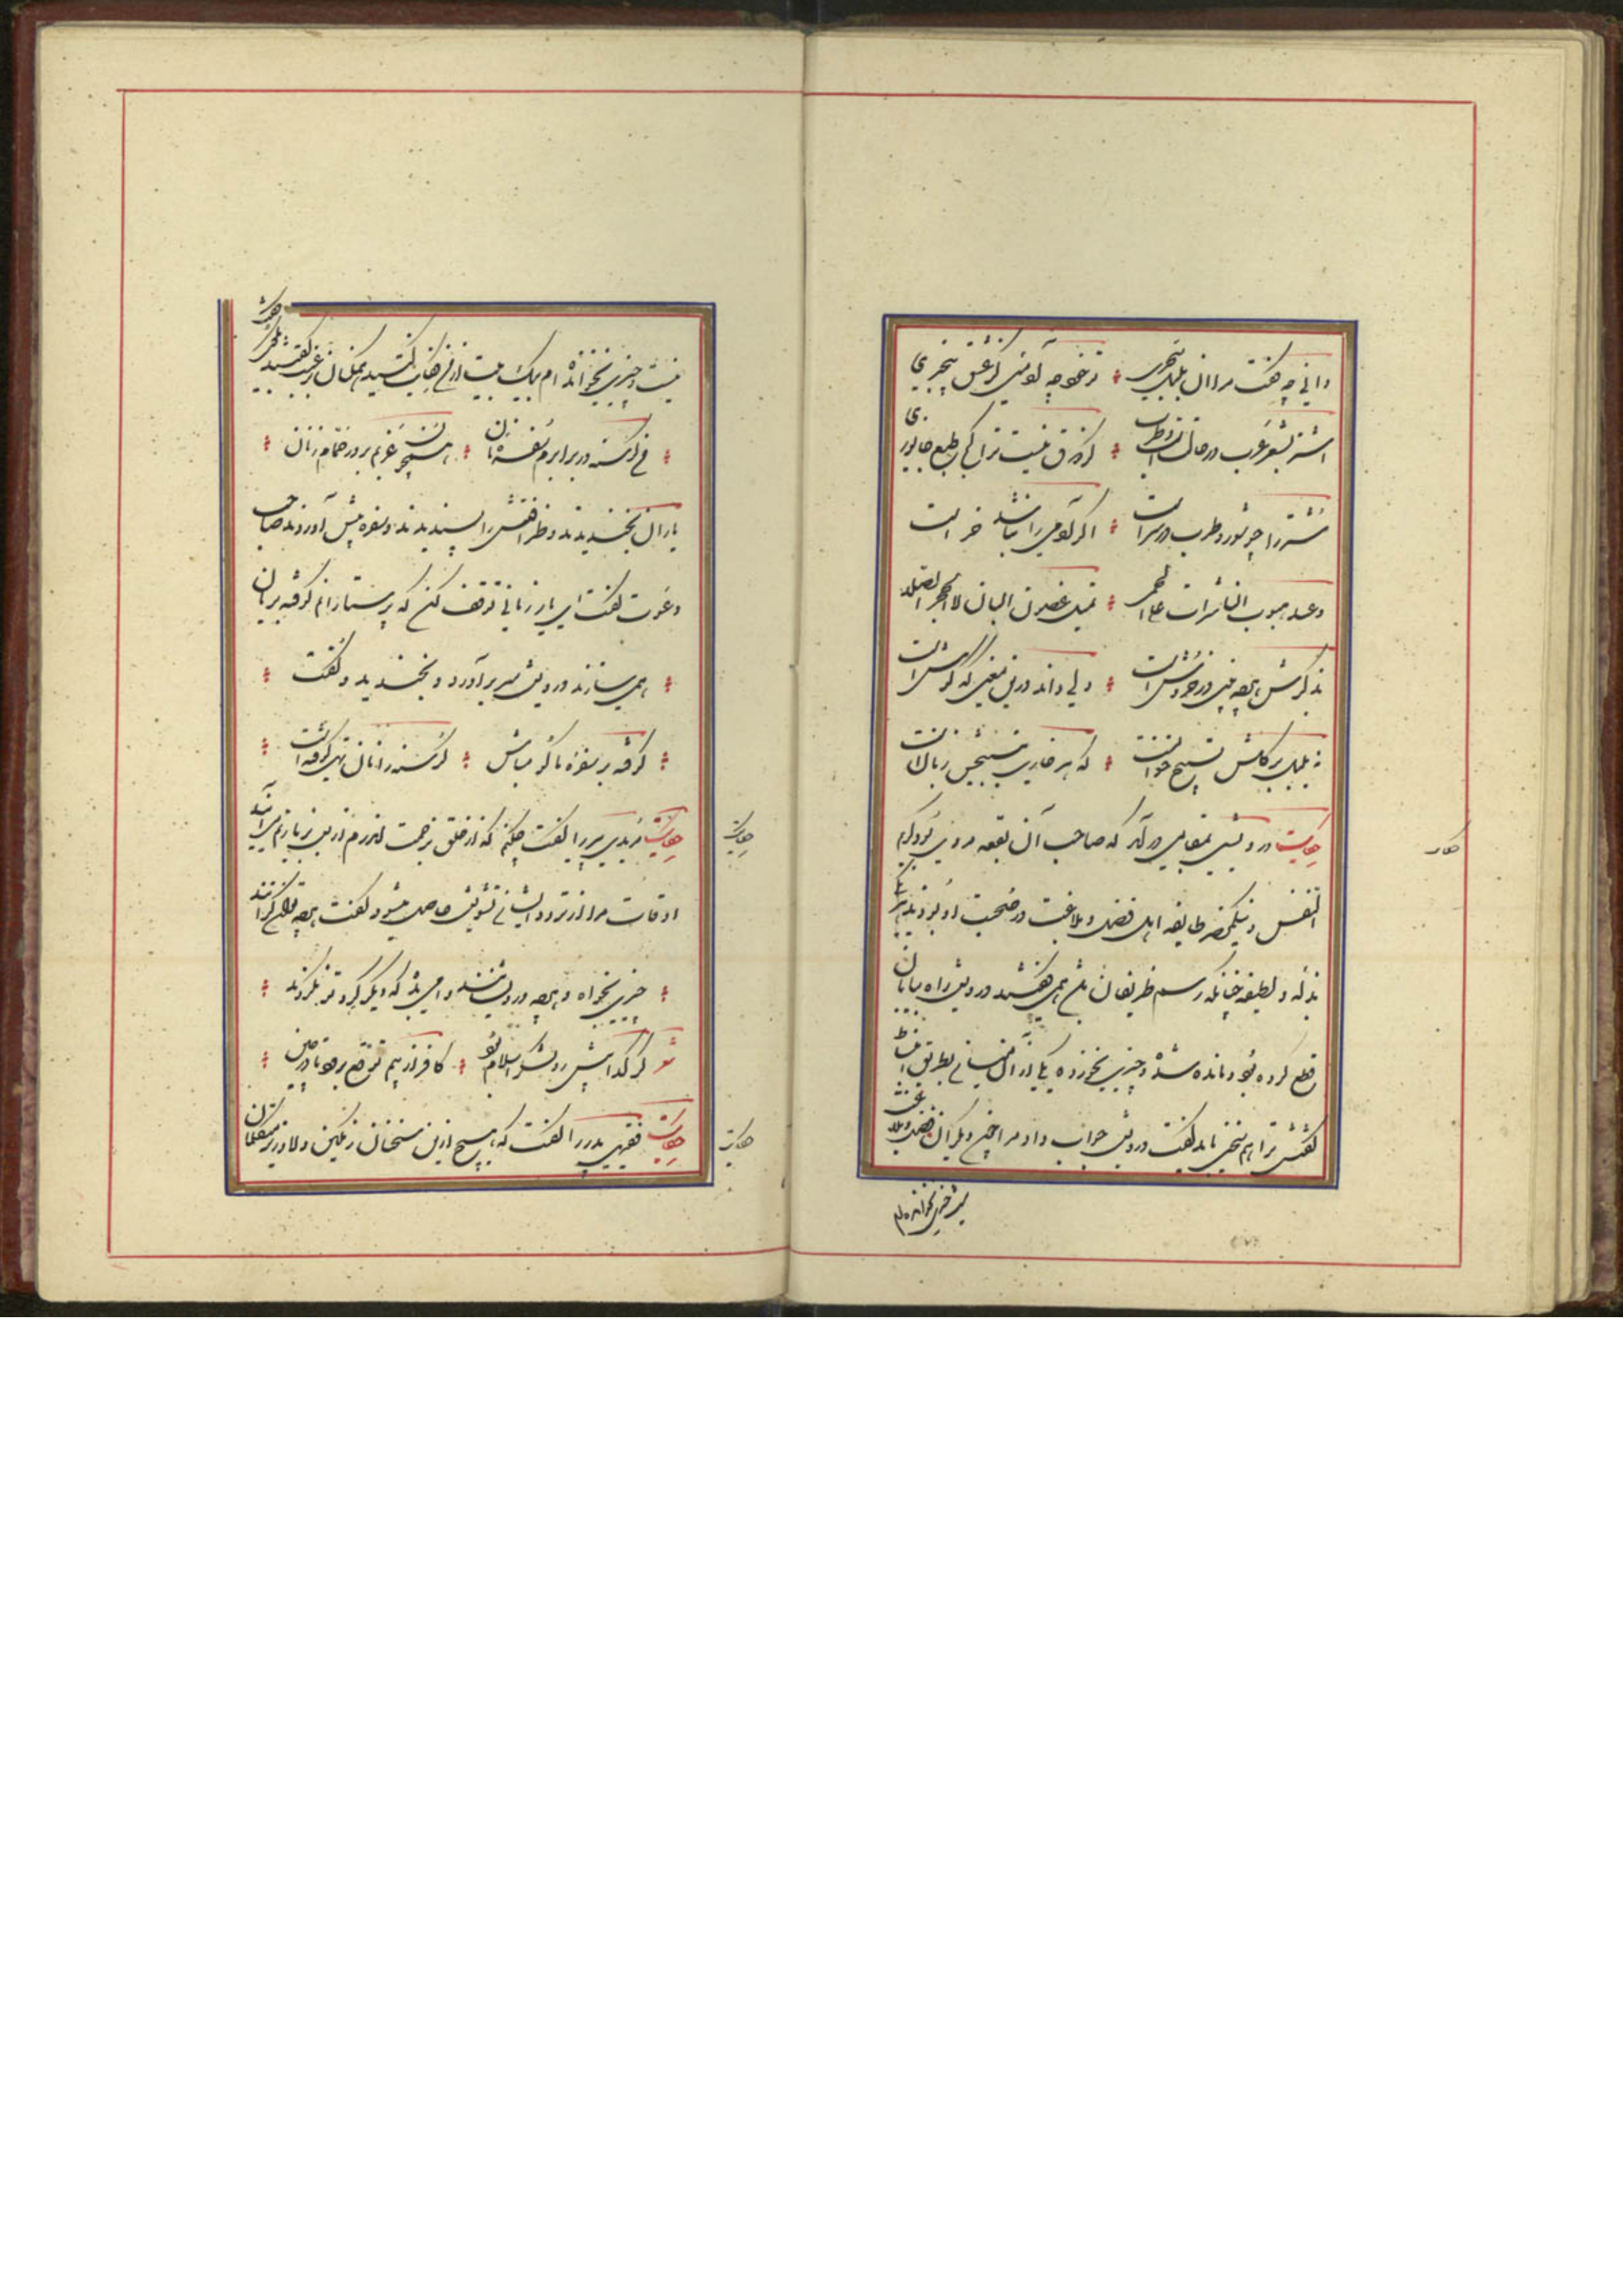 دانی چه گفت مرا آن بلبل سحری تو خود چه آدمیی کز عشق بیخبری
اشتر بشعر عرب در حالتست و طرب گر ذوق نیست ترا کژ طبع جانوری
شتر را چو شور و طرب در سرست اگر آدمی را نباشد خرست
وعند هبوب الناشرات علی الحمی تمیل غصون البان لا الحجر الصلد
بذکرش هرچه بینی در خروش است دلی داند درین معنی که گوش است
نه بلبل بر گلش تسبیح خوانست که هر خاری بتسبیحش زبانست
حکایت درویشی بمقامی درآمد که صاحب آن بقعه مردی بود کریم
النفس و نیکمحضر طایفه اهل فضل و بلاغت در صحبت او بودند هر یک
بذله و لطیفه چنانکه رسم ظریفان باشد همی گفتند درویش راه بیابان
قطع کرده بود و مانده شده و چیزی نخورده یکی از آن میان بطریق انبساط
گفتش ترا هم سخنی باید گفت درویش جواب داد مرا چون دیگران فضل و بلاغت
نیست و چیزی نخوانده ام
حکایت
نیست و چیزی نخوانده ام بیک بیت از من قناعت کنید همکنان برغبت گفتند بگوی گفت
من گرسنه در برابرم سفره نان همچون عزبم بر در حمام زنان
یاران بخندیدند و ظرافتش را پسندیدند و سفره پیش آوردند صاحب
دعوت گفت ای یار زمانی توقف کن که پرستارانم کوفته بریان
همی سازند درویش سر برآورد و بخندید و گفت
کوفته بر سفره ما گو مباش گرسنه را نان تهی کوفته است
حکایت مریدی پیر را گفت چکنم که از خلق بزحمت اندرم از بس بزیارتم می آیند
اوقات مرا از تردد ایشان تشویش حاصل میشود گفت هرچه توانگرانند
چیزی بخواه و هرچه درویشانند وامی بده که دیگر گرد تو نگردند
گر گدا پیش رو لشکر اسلام بود کافر از بیم توقع برود تا در چین
حکایت فقیهی پدر را گفت که هیچ ازین سخنان رنگین دلاویز متکلمان
حکایت
حکایت